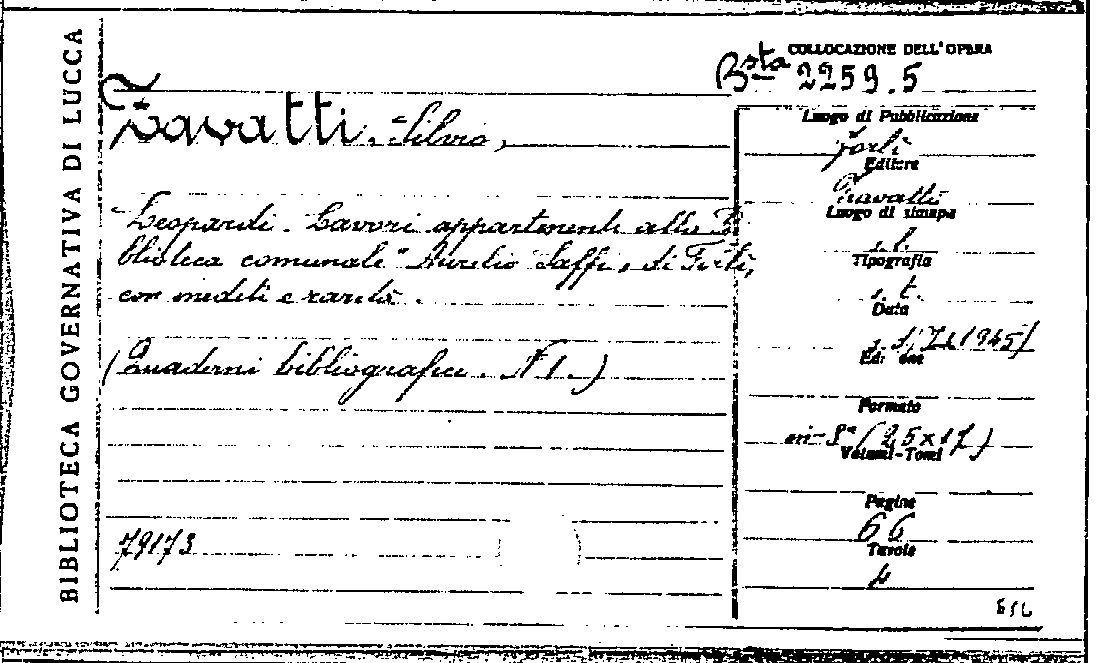 BIBLIOTECA GOVERNATIVA DI LUCCA
COLLOCAZIONE DELL'OPERA
Bsta 2259.5
Zavatti, Silvio,
Leopardi. Lavori appartenenti alla Bi
blioteca comunale "Aurelio Saffi" di Forlì,
con inediti e rarità.
(Quaderni bibliografici. N 1.)
79173
Luogo di Pubblicazione
Forlì
Editore
Zavatti
Luogo di stampa
s. l.
Tipografia
s. t.
Data
1945/
Formato
in-8° (25x17)
Volumi-Tomi
Pagine
66
Tavole
4